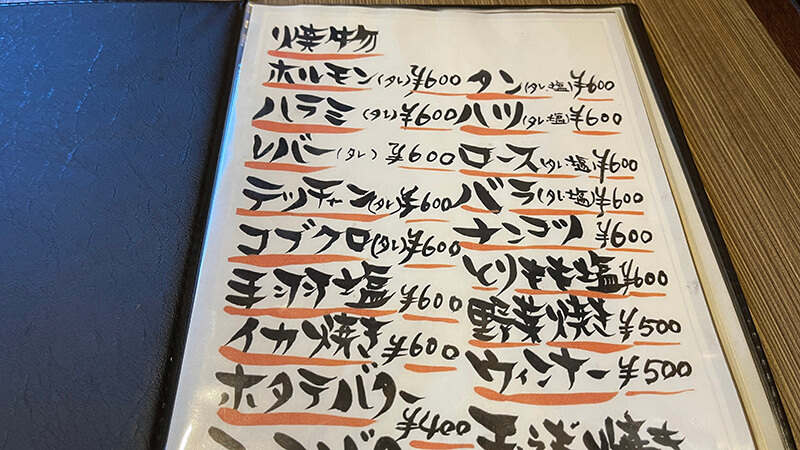 焼物
ホルモン(タレ)¥600 タン(タレ・塩)¥600
ハラミ(タレ)¥600 ハツ(タレ・塩)¥600
レバー(タレ)¥600 ロース(タレ・塩)¥600
テッチャン(タレ)¥600 バラ(タレ・塩)¥600
コブクロ(タレ)¥600 ナンコツ ¥600
手羽塩 ¥600 とりもも塩 ¥600
イカ焼き ¥600 野菜焼き ¥500
ホタテバター ¥400 ウィンナー ¥500
焼き